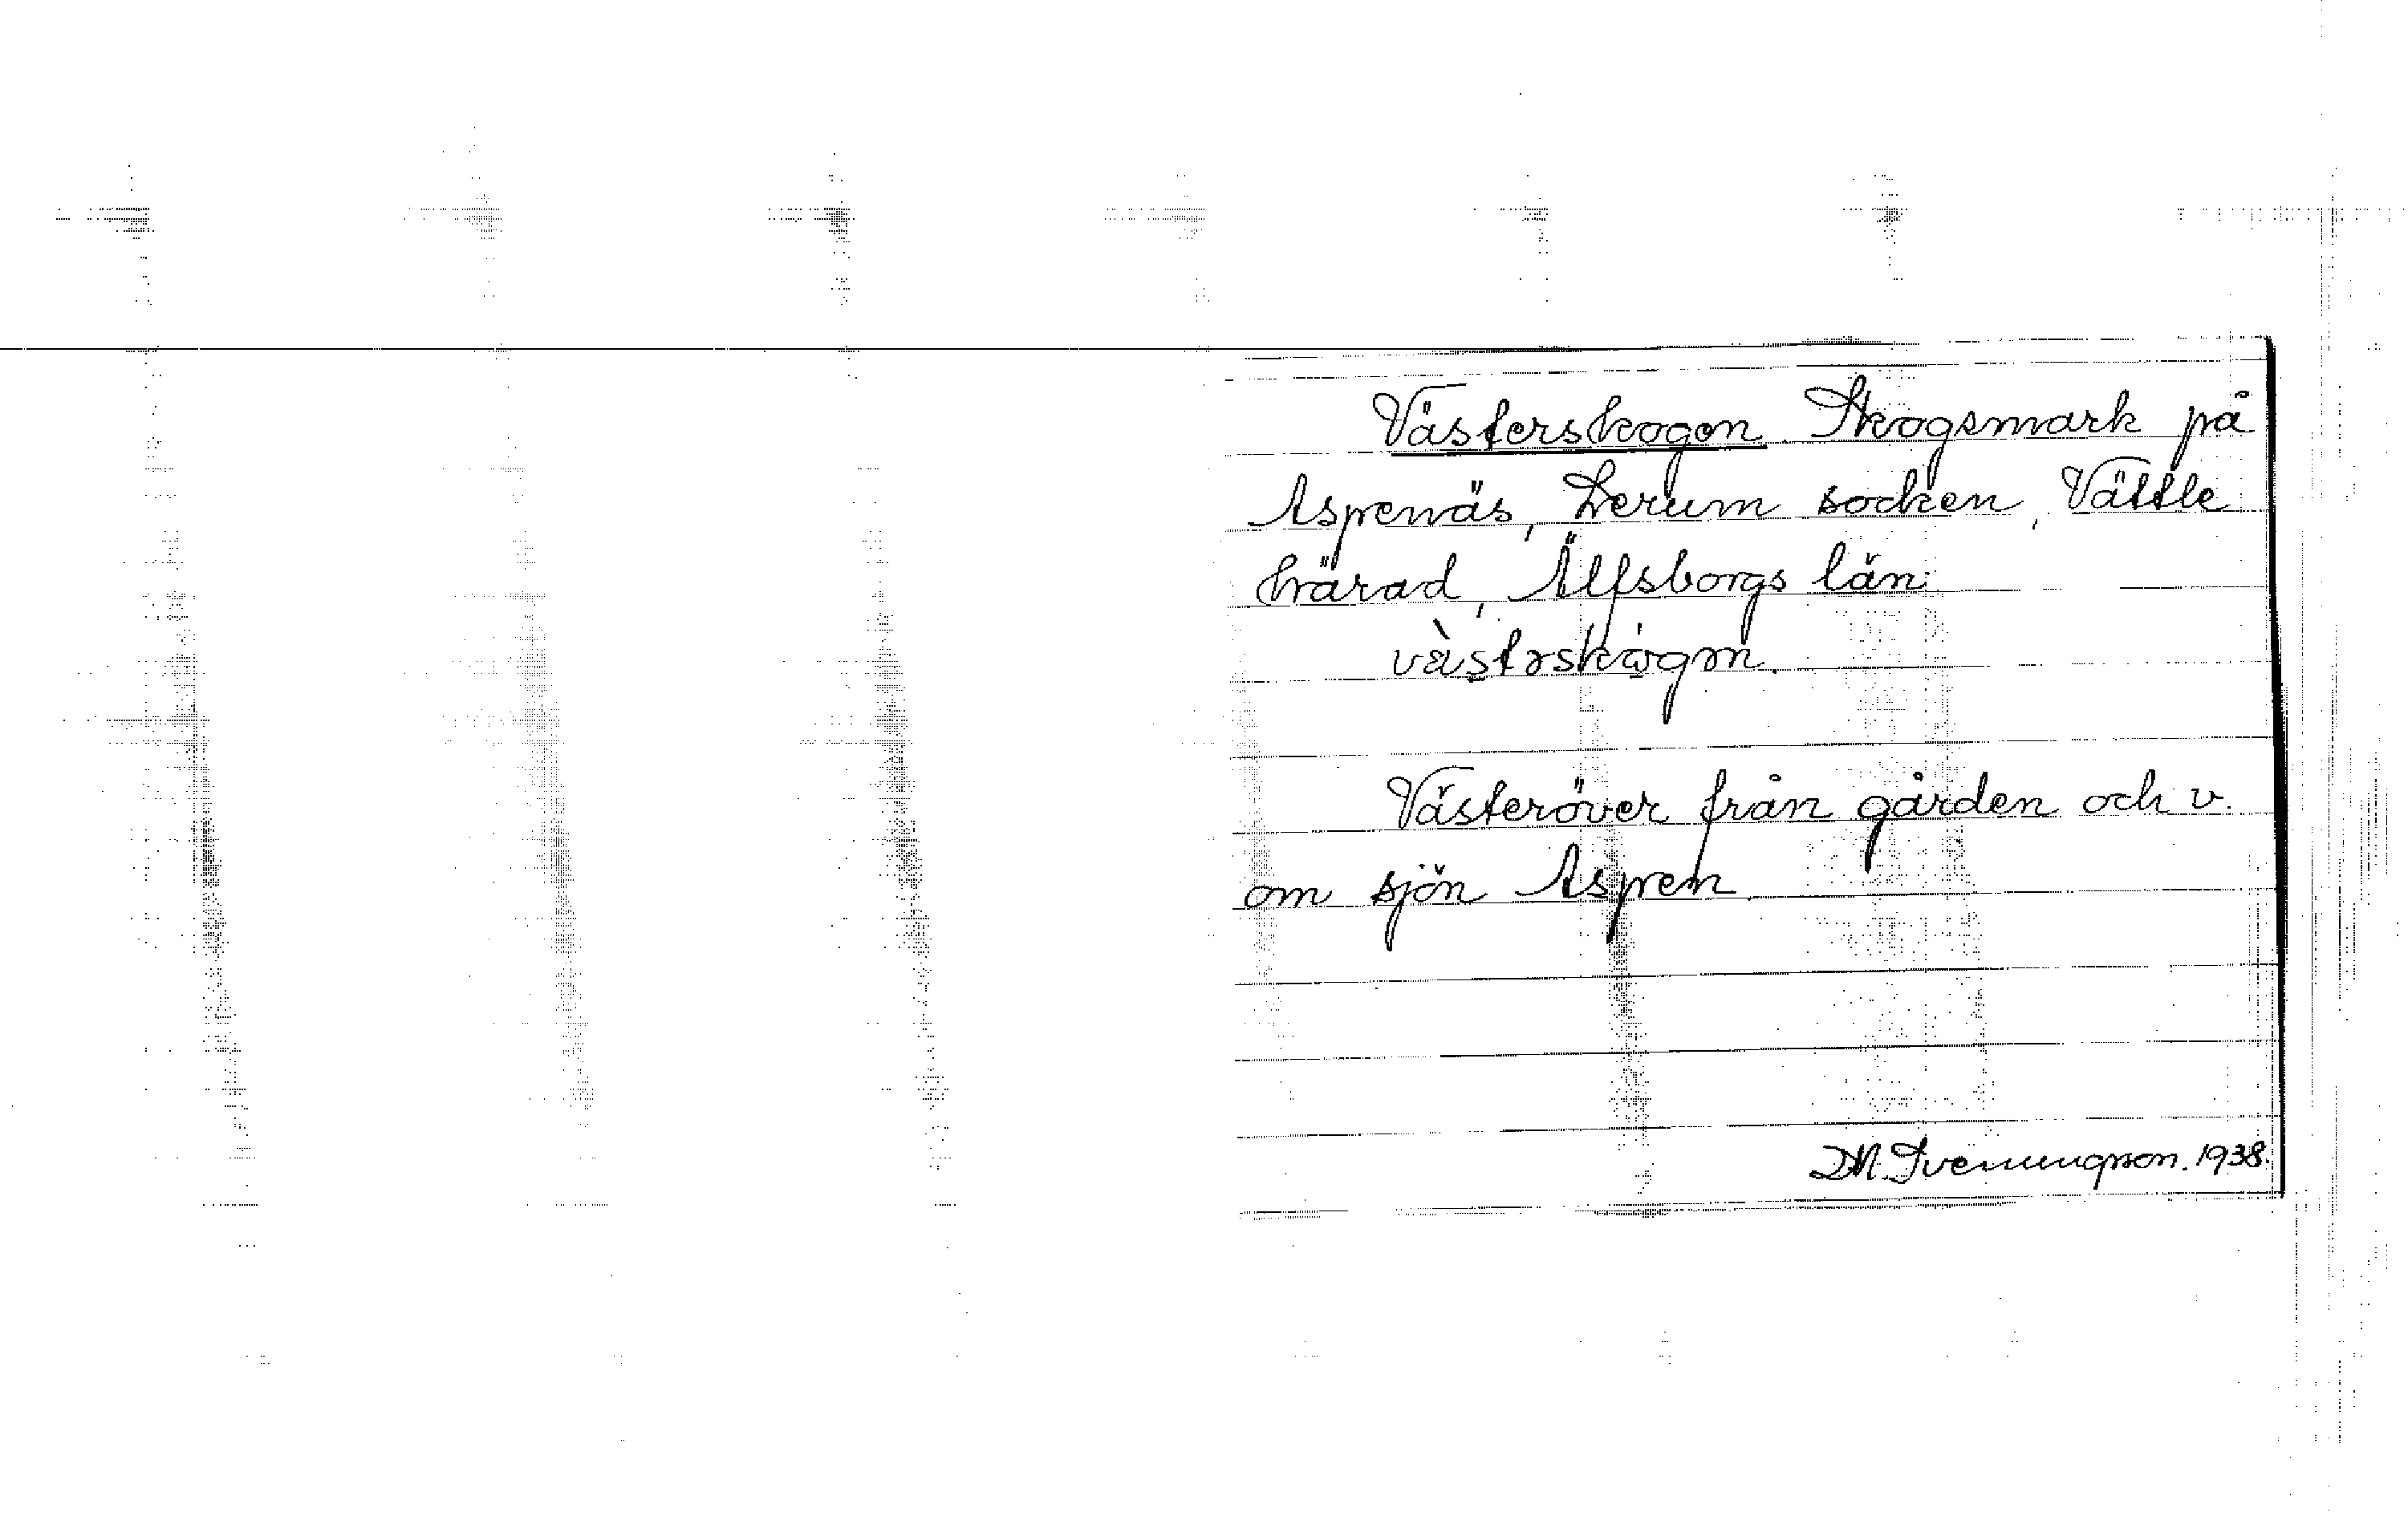 Västerskogen. Skogsmark på
Aspenäs, Lerum socken, Vättle
härad, Älfsborgs län.
Västeröver från gården och v.
om sjön Aspen.
D.M. Svenungsson. 1938.